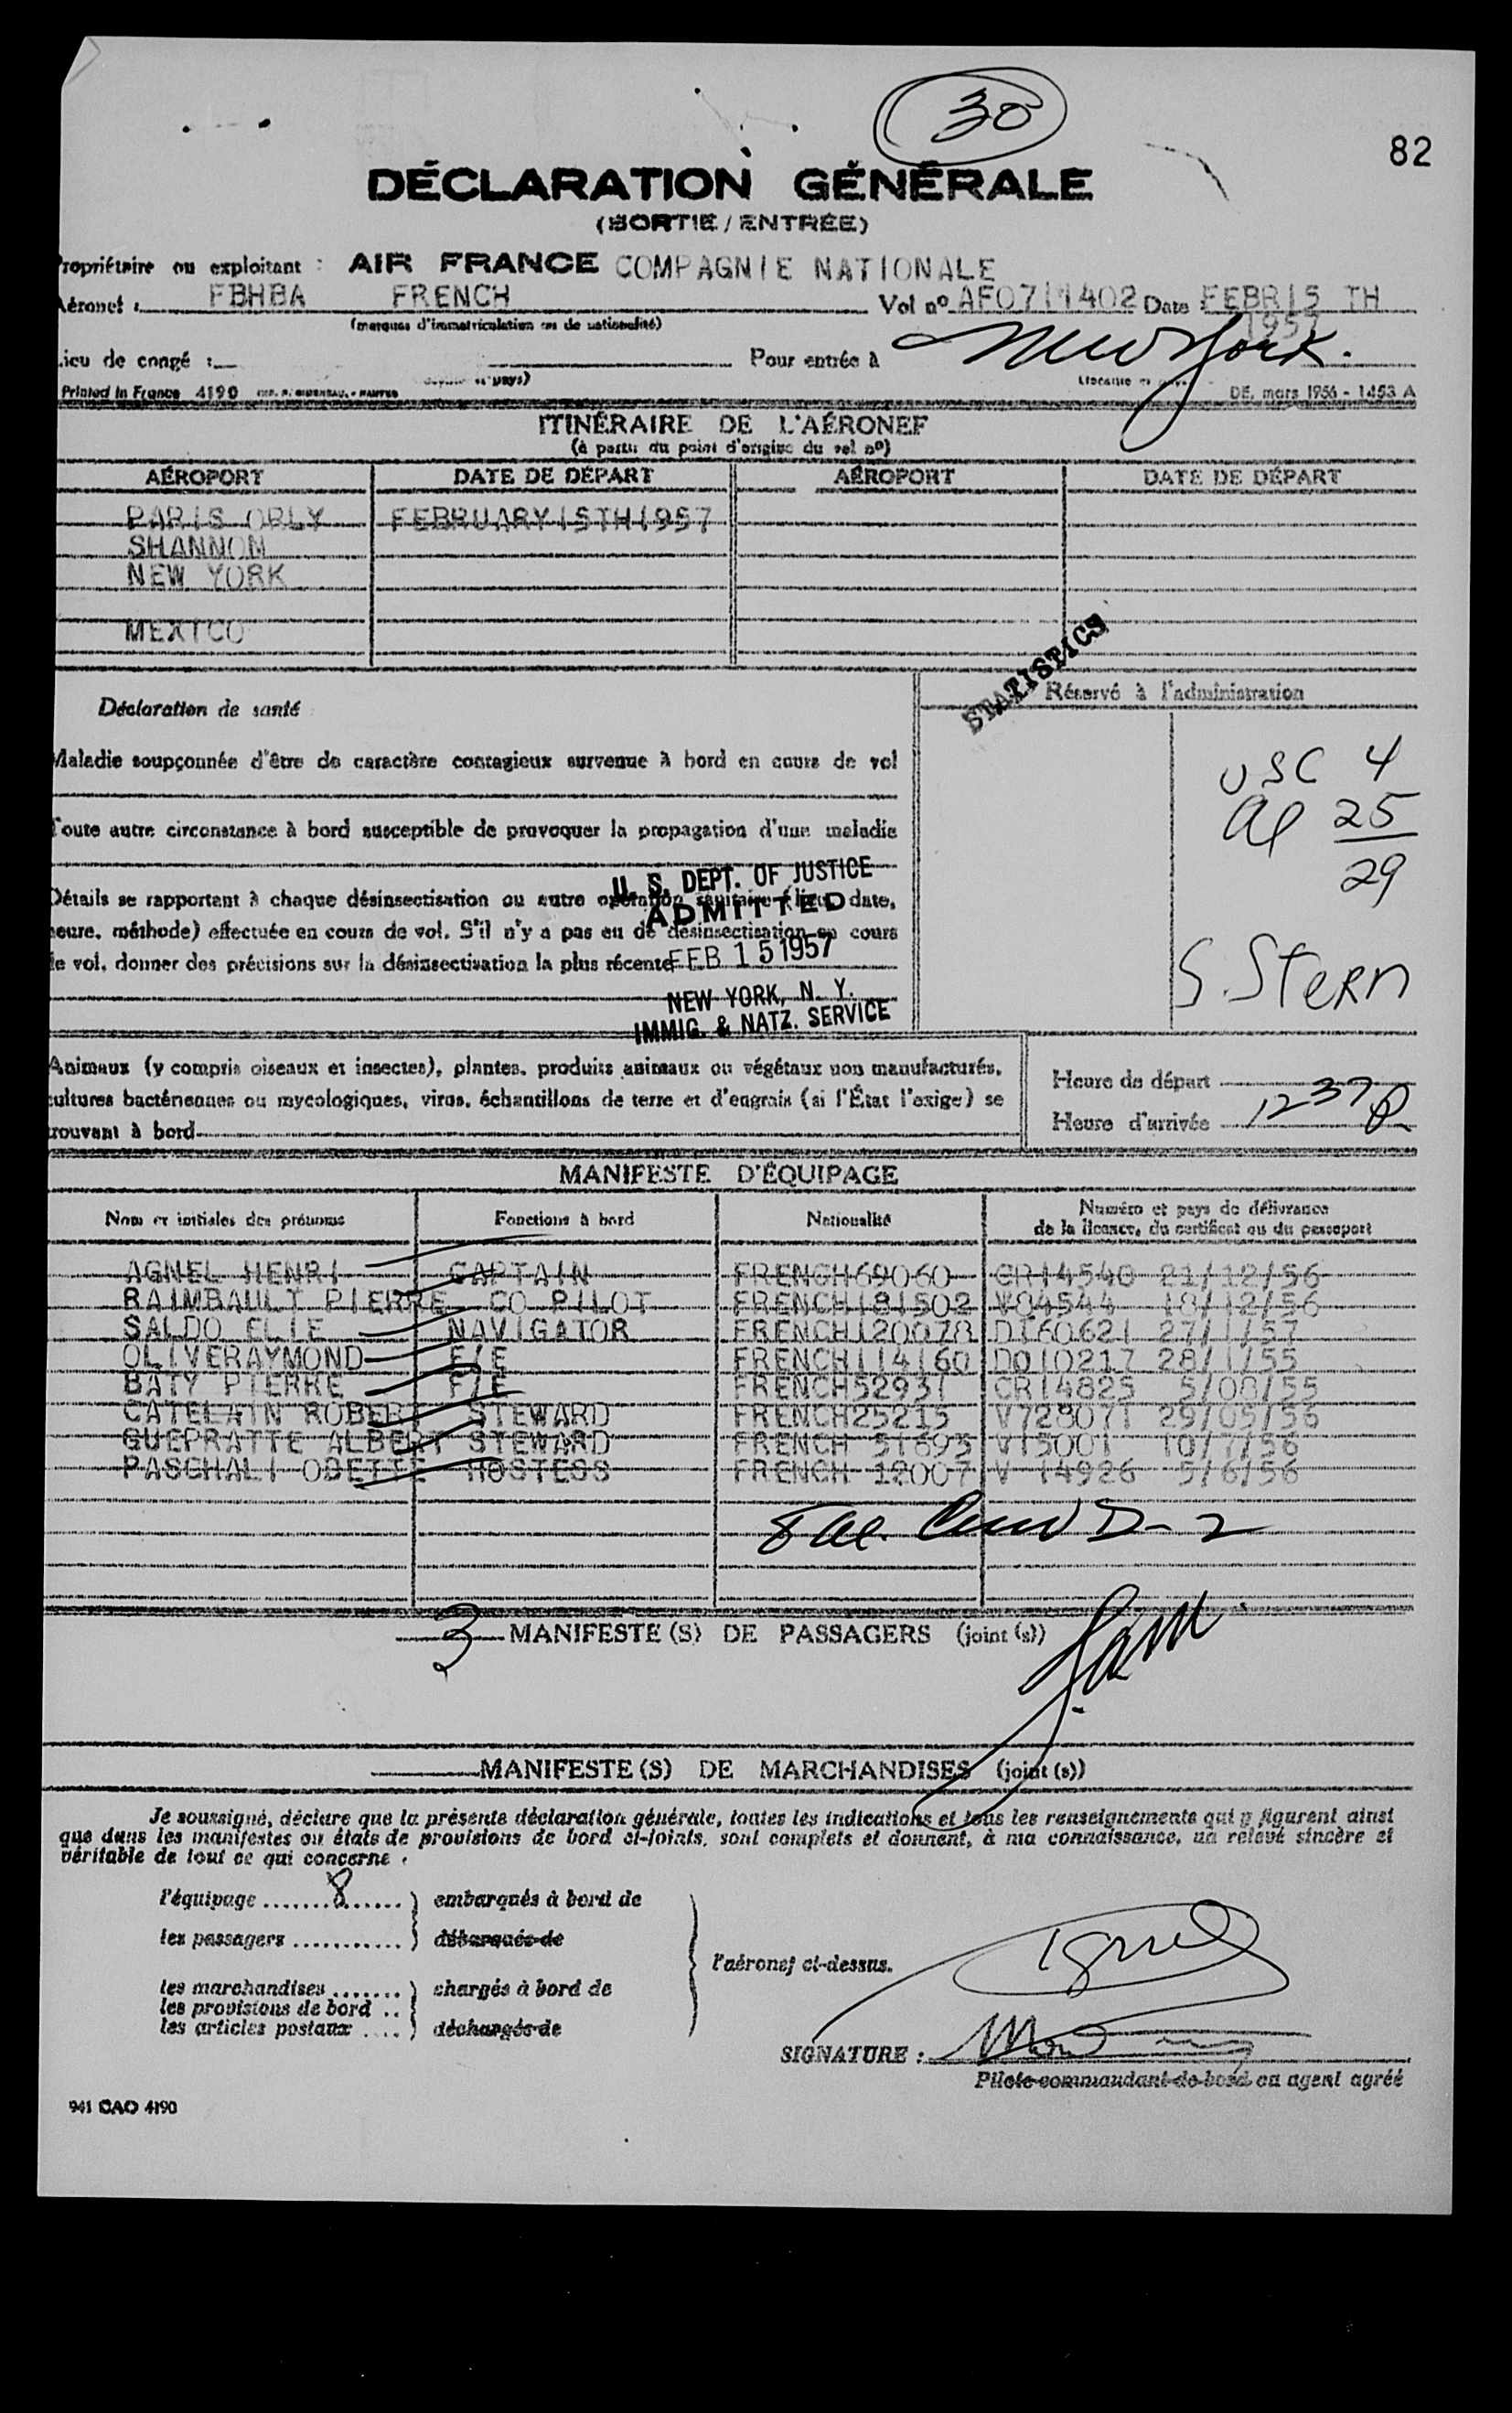 30
82
DÉCLARATION GÉNÉRALE
(SORTIE / ENTRÉE)
Propriétaire ou exploitant : AIR FRANCE COMPAGNIE NATIONALE
Aéronef : FBHBA FRENCH Vol nº AF07/1402 Date FEBR15 TH
1957
(marques d'immatriculation et de nationalité)
Lieu de congé : Pour entrée à New York.
Printed in France 4190 DE. mars 1956 - 1453 A
ITINÉRAIRE DE L'AÉRONEF
(à partir du point d'origine du vol nº)
AÉROPORT DATE DE DÉPART AÉROPORT DATE DE DÉPART
PARIS ORLY FEBRUARY15TH1957
SHANNON
NEW YORK
MEXICO
STATISTICS
Déclaration de santé Réservé à l'administration
Maladie soupçonnée d'être de caractère contagieux survenue à bord en cours de vol
USC 4
Al 25
29
Toute autre circonstance à bord susceptible de provoquer la propagation d'une maladie
U. S. DEPT. OF JUSTICE
ADMITTED
FEB 15 1957
NEW YORK, N. Y.
IMMIG. & NATZ. SERVICE
Détails se rapportant à chaque désinsectisation ou autre opération sanitaire (lieu, date,
heure, méthode) effectuée en cours de vol. S'il n'y a pas eu de désinsectisation en cours
de vol, donner des précisions sur la désinsectisation la plus récente
S. Stern
Animaux (y compris oiseaux et insectes), plantes, produits animaux ou végétaux non manufacturés,
cultures bactériennes ou mycologiques, virus, échantillons de terre et d'engrais (si l'État l'exige) se
trouvant à bord
Heure de départ
Heure d'arrivée 1237 P
MANIFESTE D'ÉQUIPAGE
Nom et initiales des prénoms Fonctions à bord Nationalité Numéro et pays de délivrance
de la licence, du certificat ou du passeport
AGNEL HENRI CAPTAIN FRENCH69060 CR14540 21/12/56
RAIMBAULT PIERRE CO PILOT FRENCH181502 V84544 18/12/56
SALDO ELIE NAVIGATOR FRENCH120078 DT60621 27/1/57
OLIVERAYMOND F/E FRENCH114160 DO10217 28/1/55
BATY PIERRE F/E FRENCH52931 CR14825 5/08/55
CATELAIN ROBERT STEWARD FRENCH25215 V728071 29/05/56
GUEPRATTE ALBERT STEWARD FRENCH 51693 V15001 10/7/56
PASCHALI ODETTE HOSTESS FRENCH 12007 V 14926 5/6/56
8 al. Crew D-2
3 MANIFESTE(S) DE PASSAGERS (joint(s))
MANIFESTE(S) DE MARCHANDISES (joint(s))
Je soussigné, déclare que la présente déclaration générale, toutes les indications et tous les renseignements qui y figurent ainsi
que dans les manifestes ou états de provisions de bord ci-joints, sont complets et donnent, à ma connaissance, un relevé sincère et
véritable de tout ce qui concerne :
l'équipage ....... 8 ...... ) embarqués à bord de
les passagers ........... ) débarqués de
l'aéronef ci-dessus.
les marchandises ....... ) chargés à bord de
les provisions de bord ..
les articles postaux .... ) déchargés de
SIGNATURE :
Pilote commandant de bord ou agent agréé
941 CAO 4190